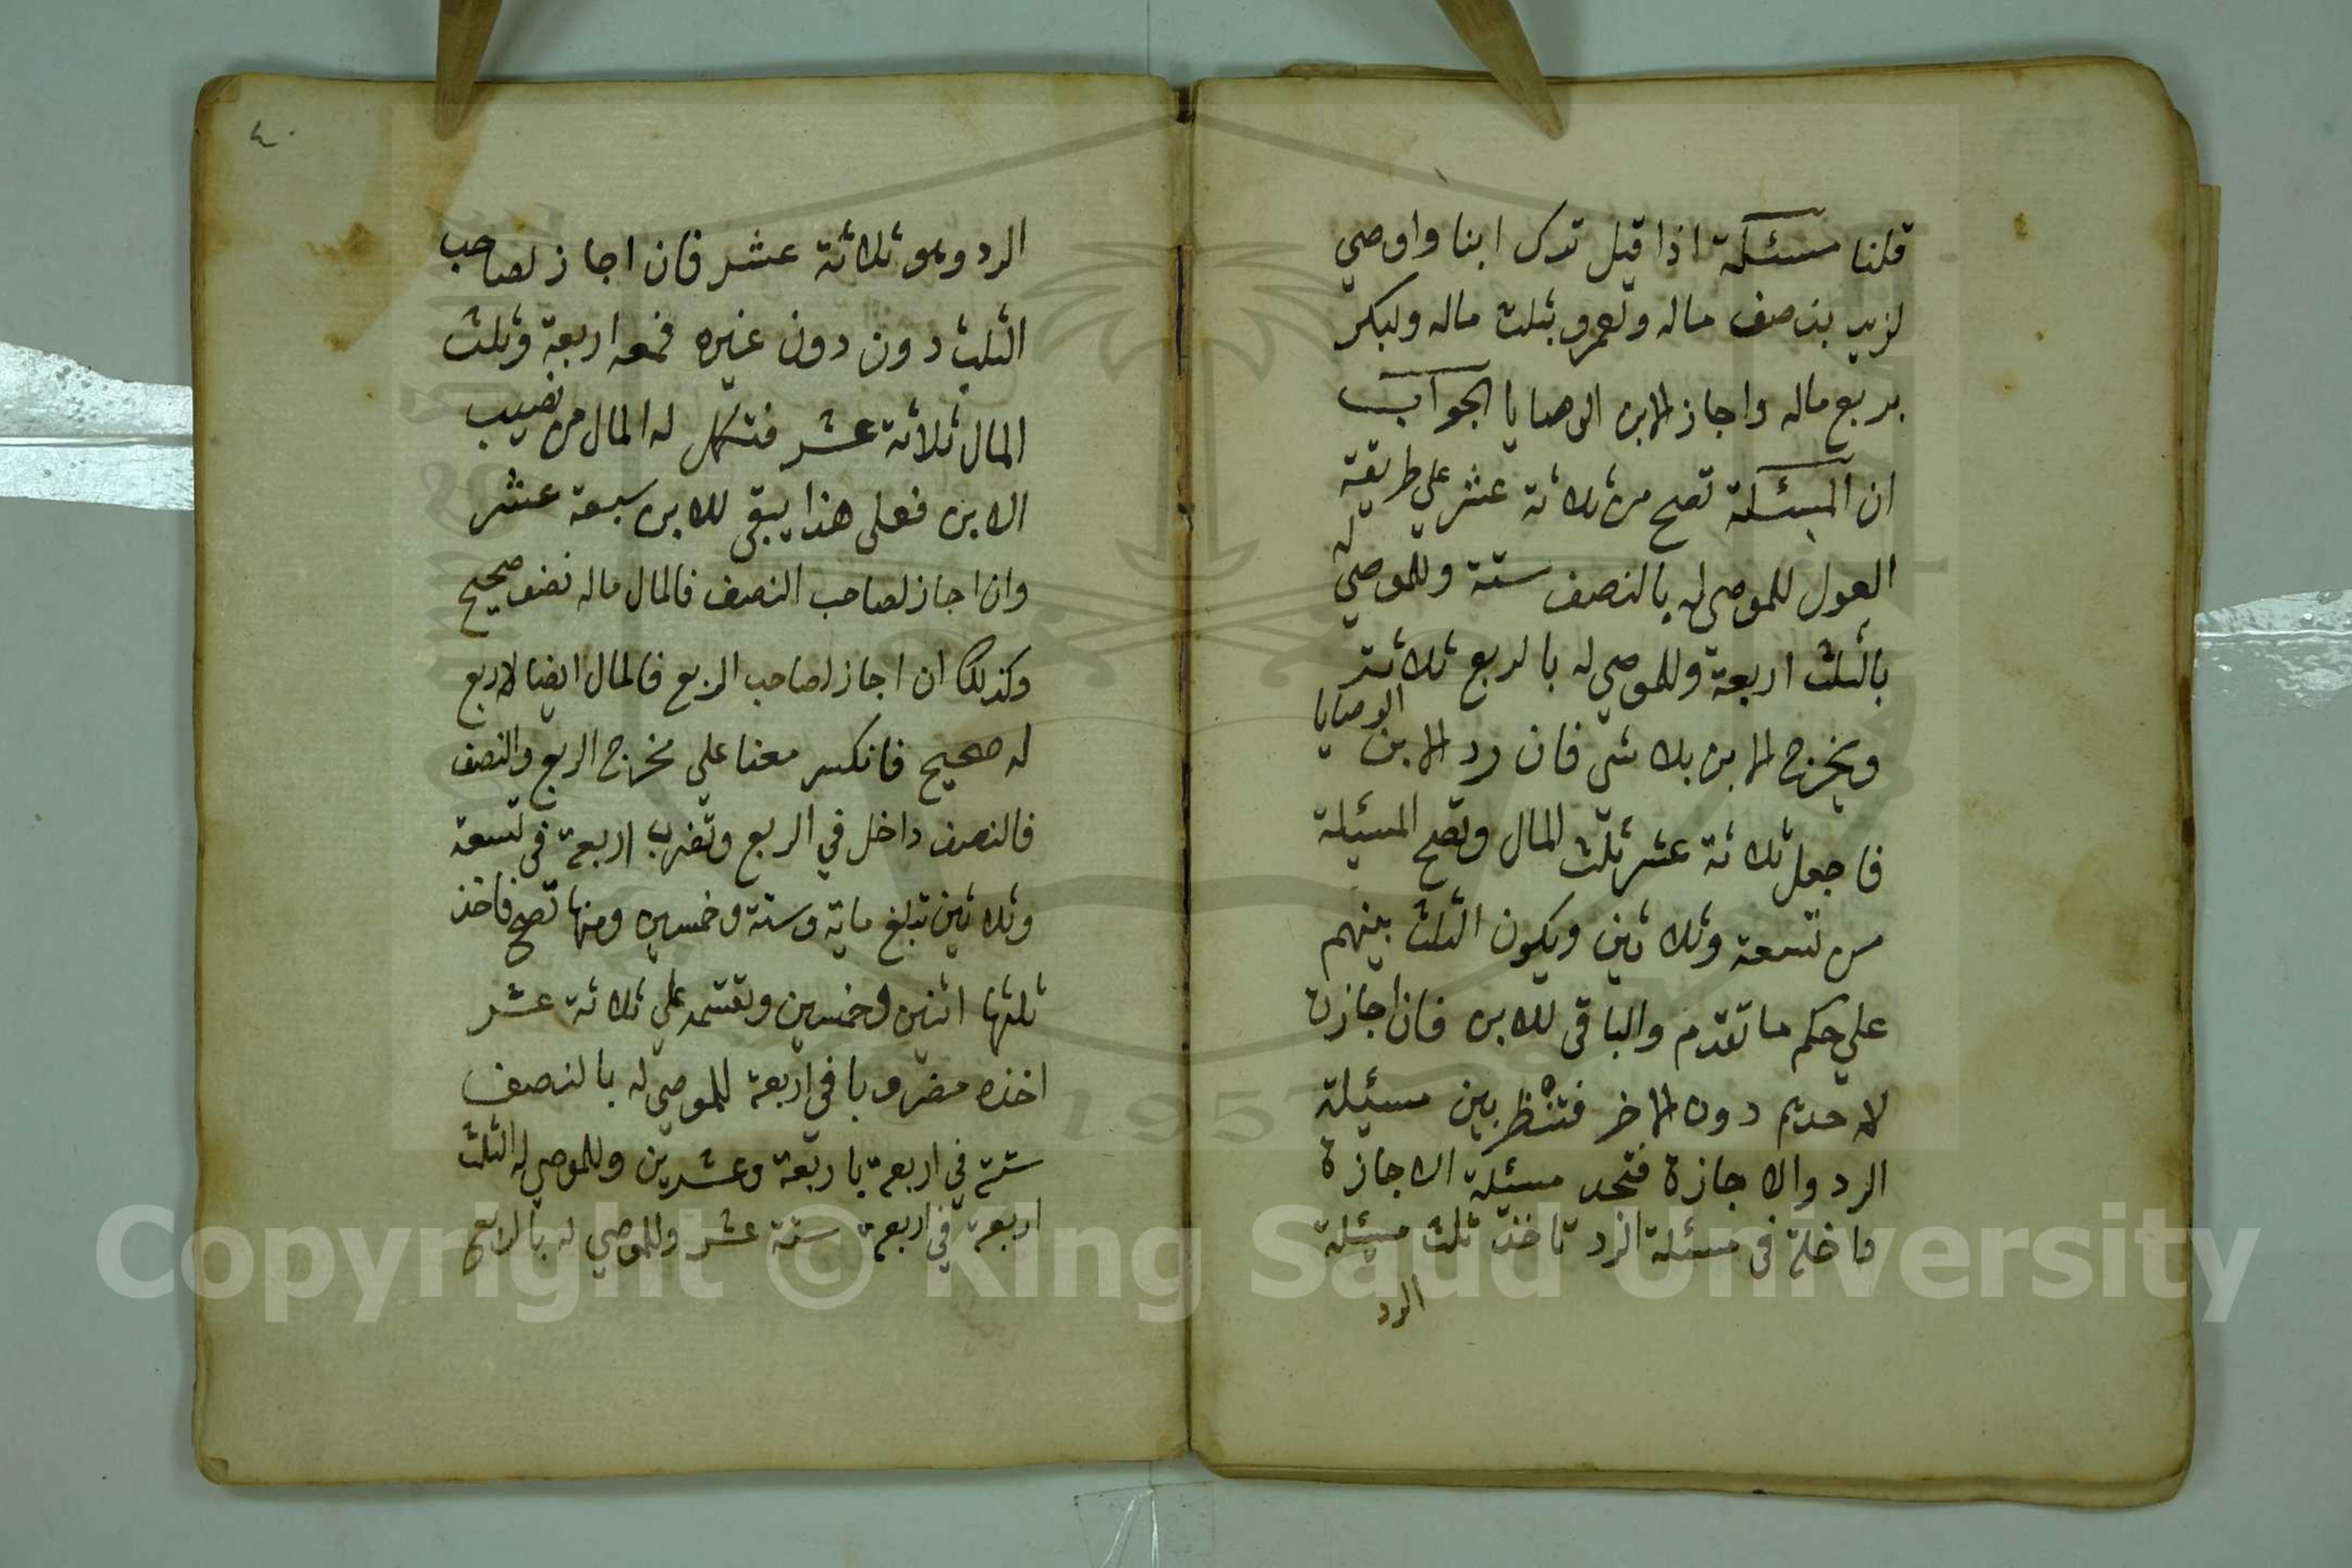 قلنا مسئلة اذا قيل ترك ابنا واوصي
لزيد بنصف ماله ولعمرو بثلث ماله ولبكر
بربع ماله واجاز الابن الوصايا الجواب
ان المسئلة تصح من ثلاثة عشر علي طريقة
العول للموصي له بالنصف ستة وللموصي له
بالثلث اربعة وللموصي له بالربع ثلاثة
ويخرج الابن بلا شي فان رد الابن الوصايا
فاجعل ثلاثة عشر ثلث المال وتصح المسئلة
من تسعة وثلاثين ويكون الثلث بينهم
علي حكم ما تقدم والباقي للابن فان اجازت
لاحديهم دون الاخر فتنظر بين مسئلة
الرد والاجازة فتجد مسئلة الاجازة
داخلة في مسئلة الرد تاخذ ثلث مسئلة
الرد
٤٠
الرد وهو ثلاثة عشر فان اجاز لصاحب
الثلث دون دون غيره فمعه اربعة وثلث
المال ثلاثة عشر فتكمل له المال من نصيب
الابن فعلى هذا يبقى للابن سبعة عشر
وان اجاز لصاحب النصف فالمال ماله نصف صحيح
وكذلك ان اجاز لصاحب الربع فالمال ايضا لا ربع
له صحيح فانكسر معنا علي مخرج الربع والنصف
فالنصف داخل في الربع وتضرب اربعة في تسعة
وثلاثين تبلغ ماية وستة وخمسين ومنها تصح فاخذ
ثلثها اثنين وخمسين وتقسمه علي ثلاثة عشر
اخذه مضروبا في اربعة للموصي له بالنصف
ستة في اربعة باربعة وعشرين وللموصي له الثلث
اربعة في اربعة ستة عشر وللموصي له بالربع
1957
Copyright © King Saud University